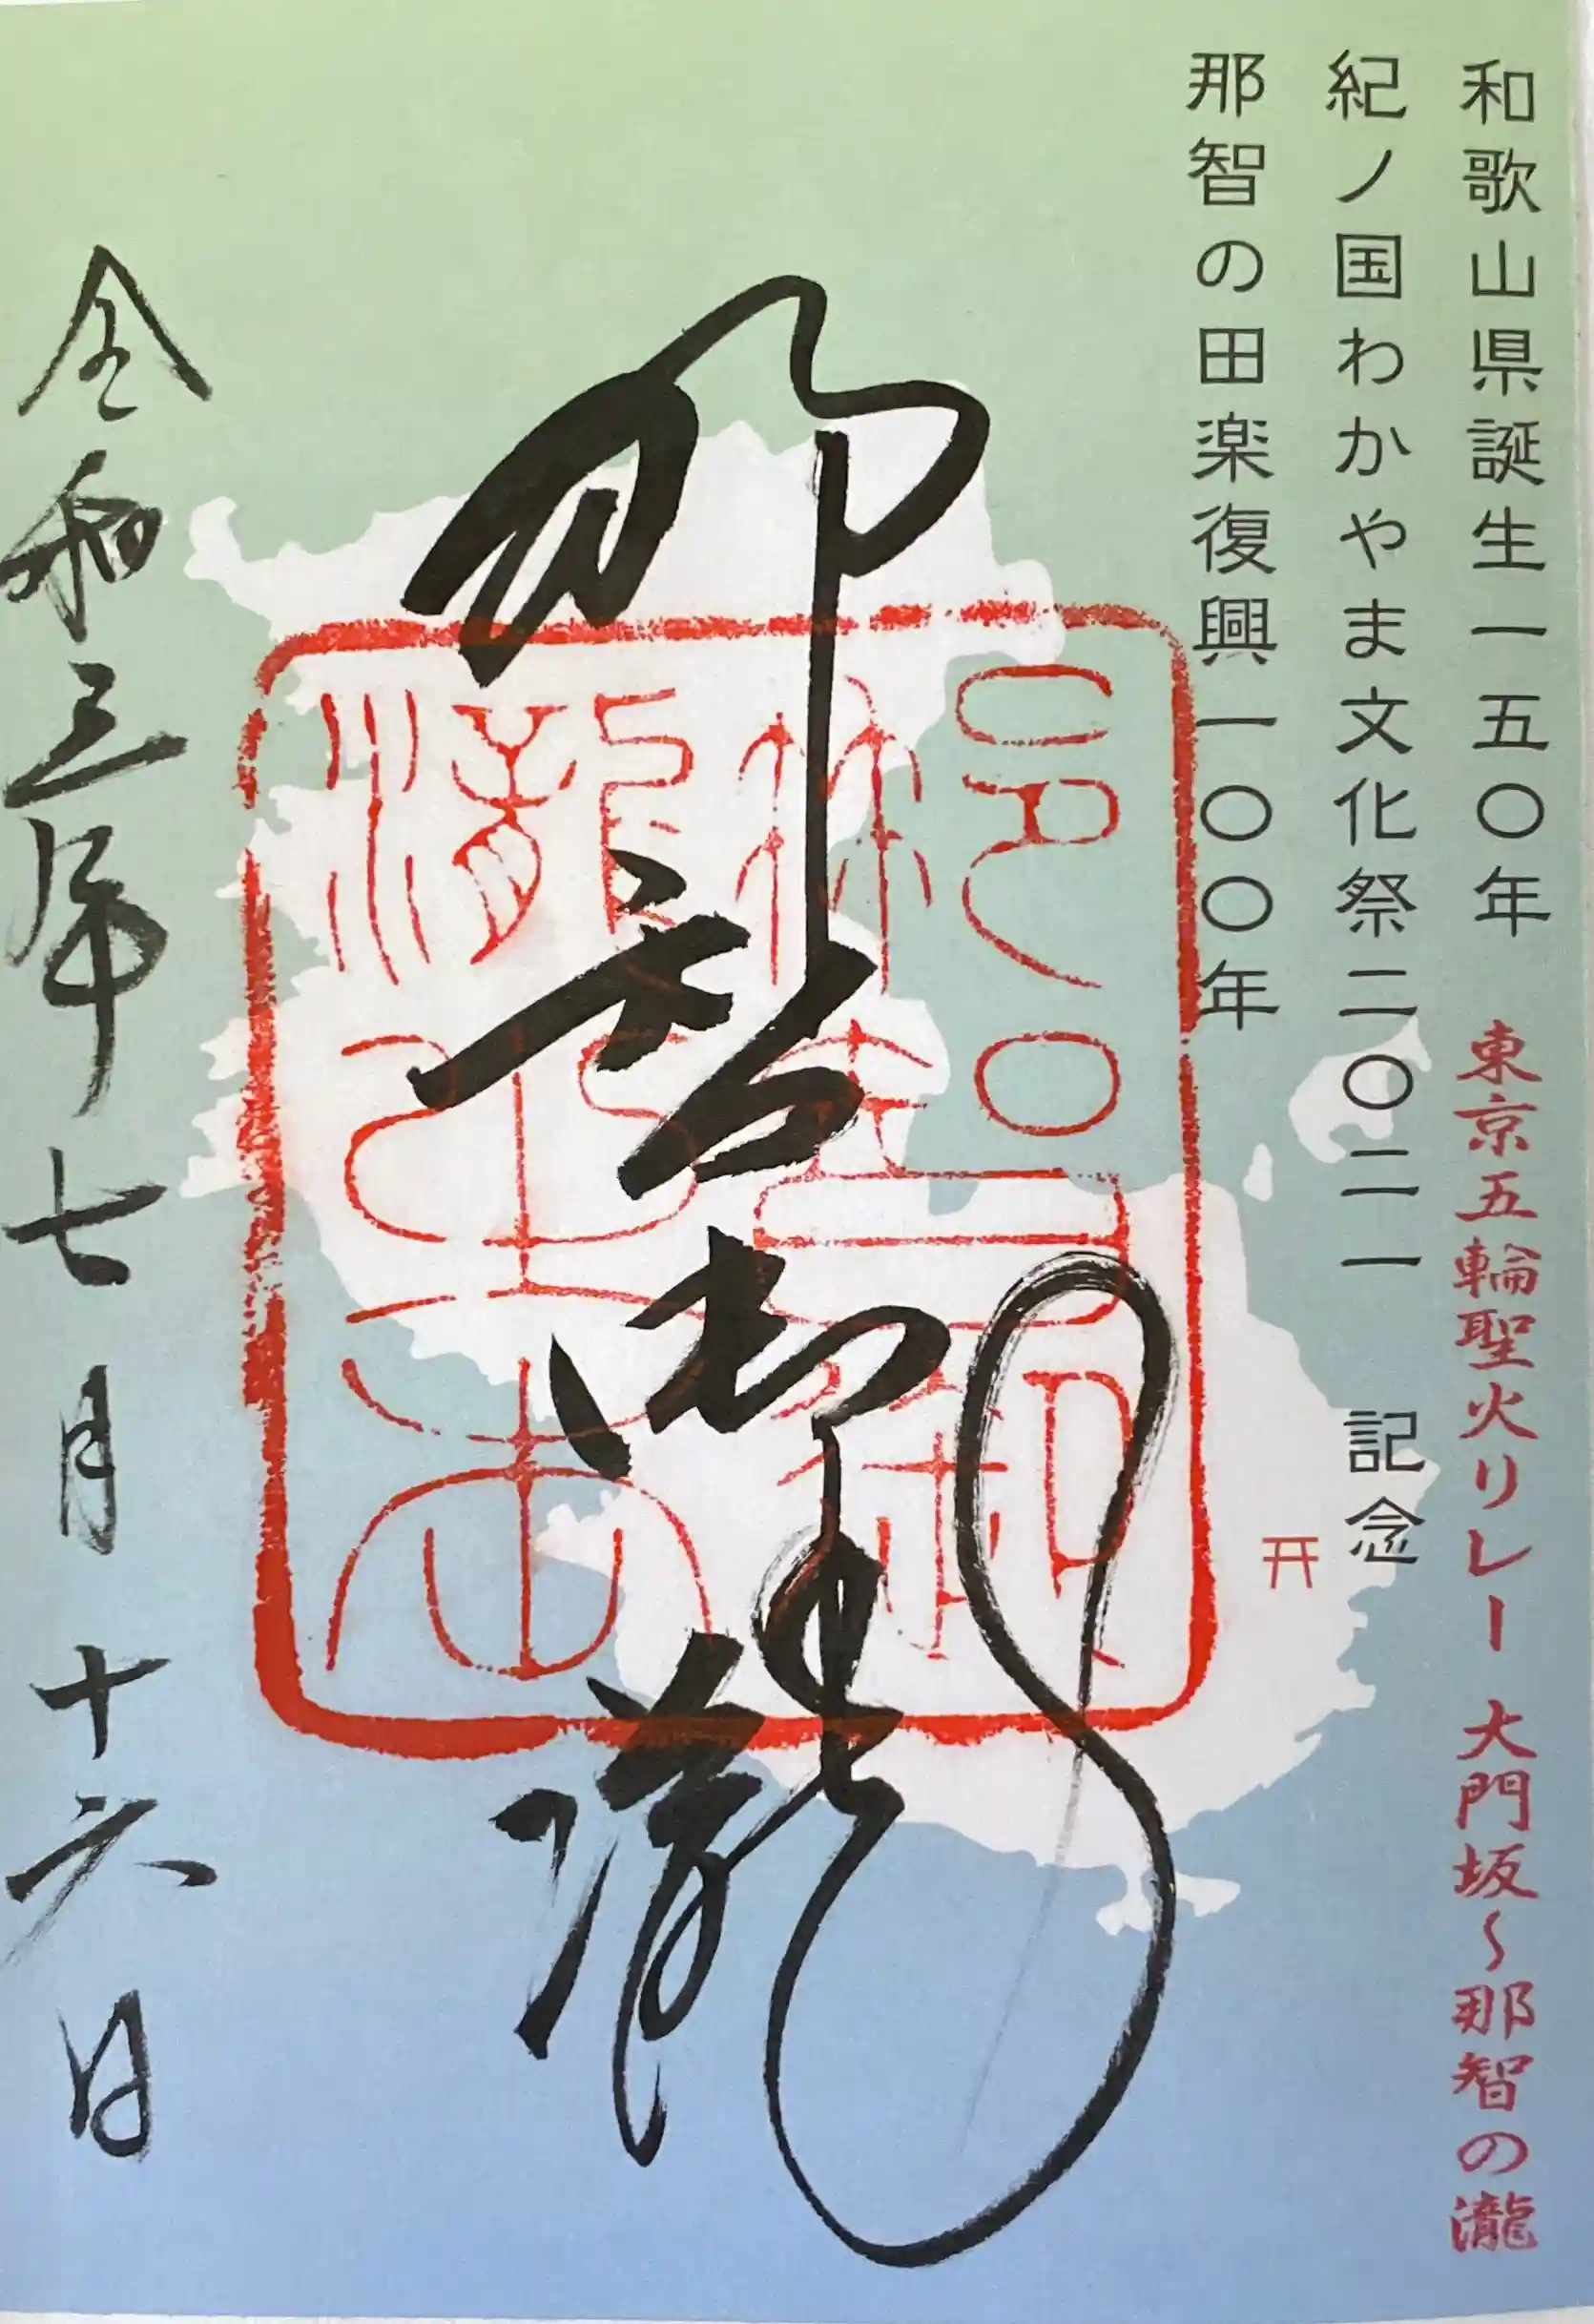 和歌山県誕生一五〇年
東京五輪聖火リレー 大門坂～那智の瀧
紀ノ国わかやま文化祭二〇二一 記念
那智の田楽復興一〇〇年
那智御瀧
令和三年七月十六日